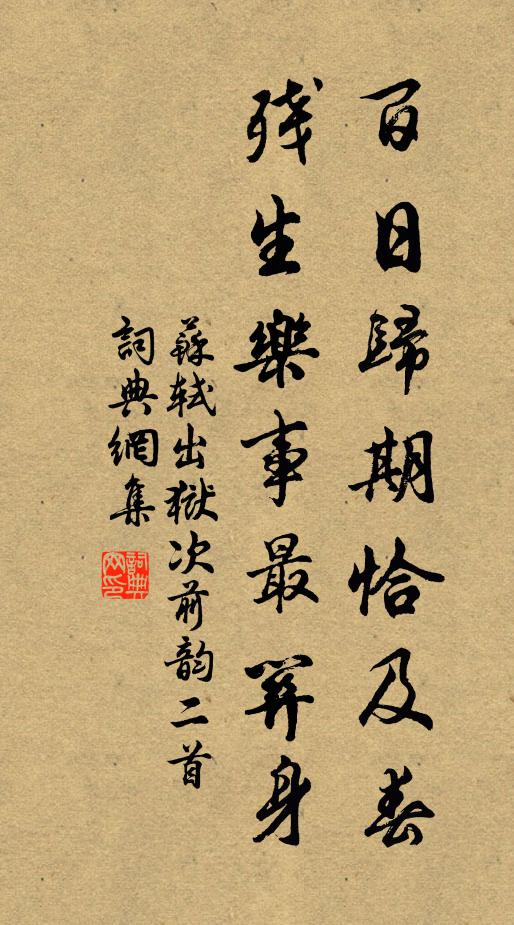 百日歸期恰及春
残生樂事最關身
蘇軾出獄次前韵二首
詞典網集
詞典网印